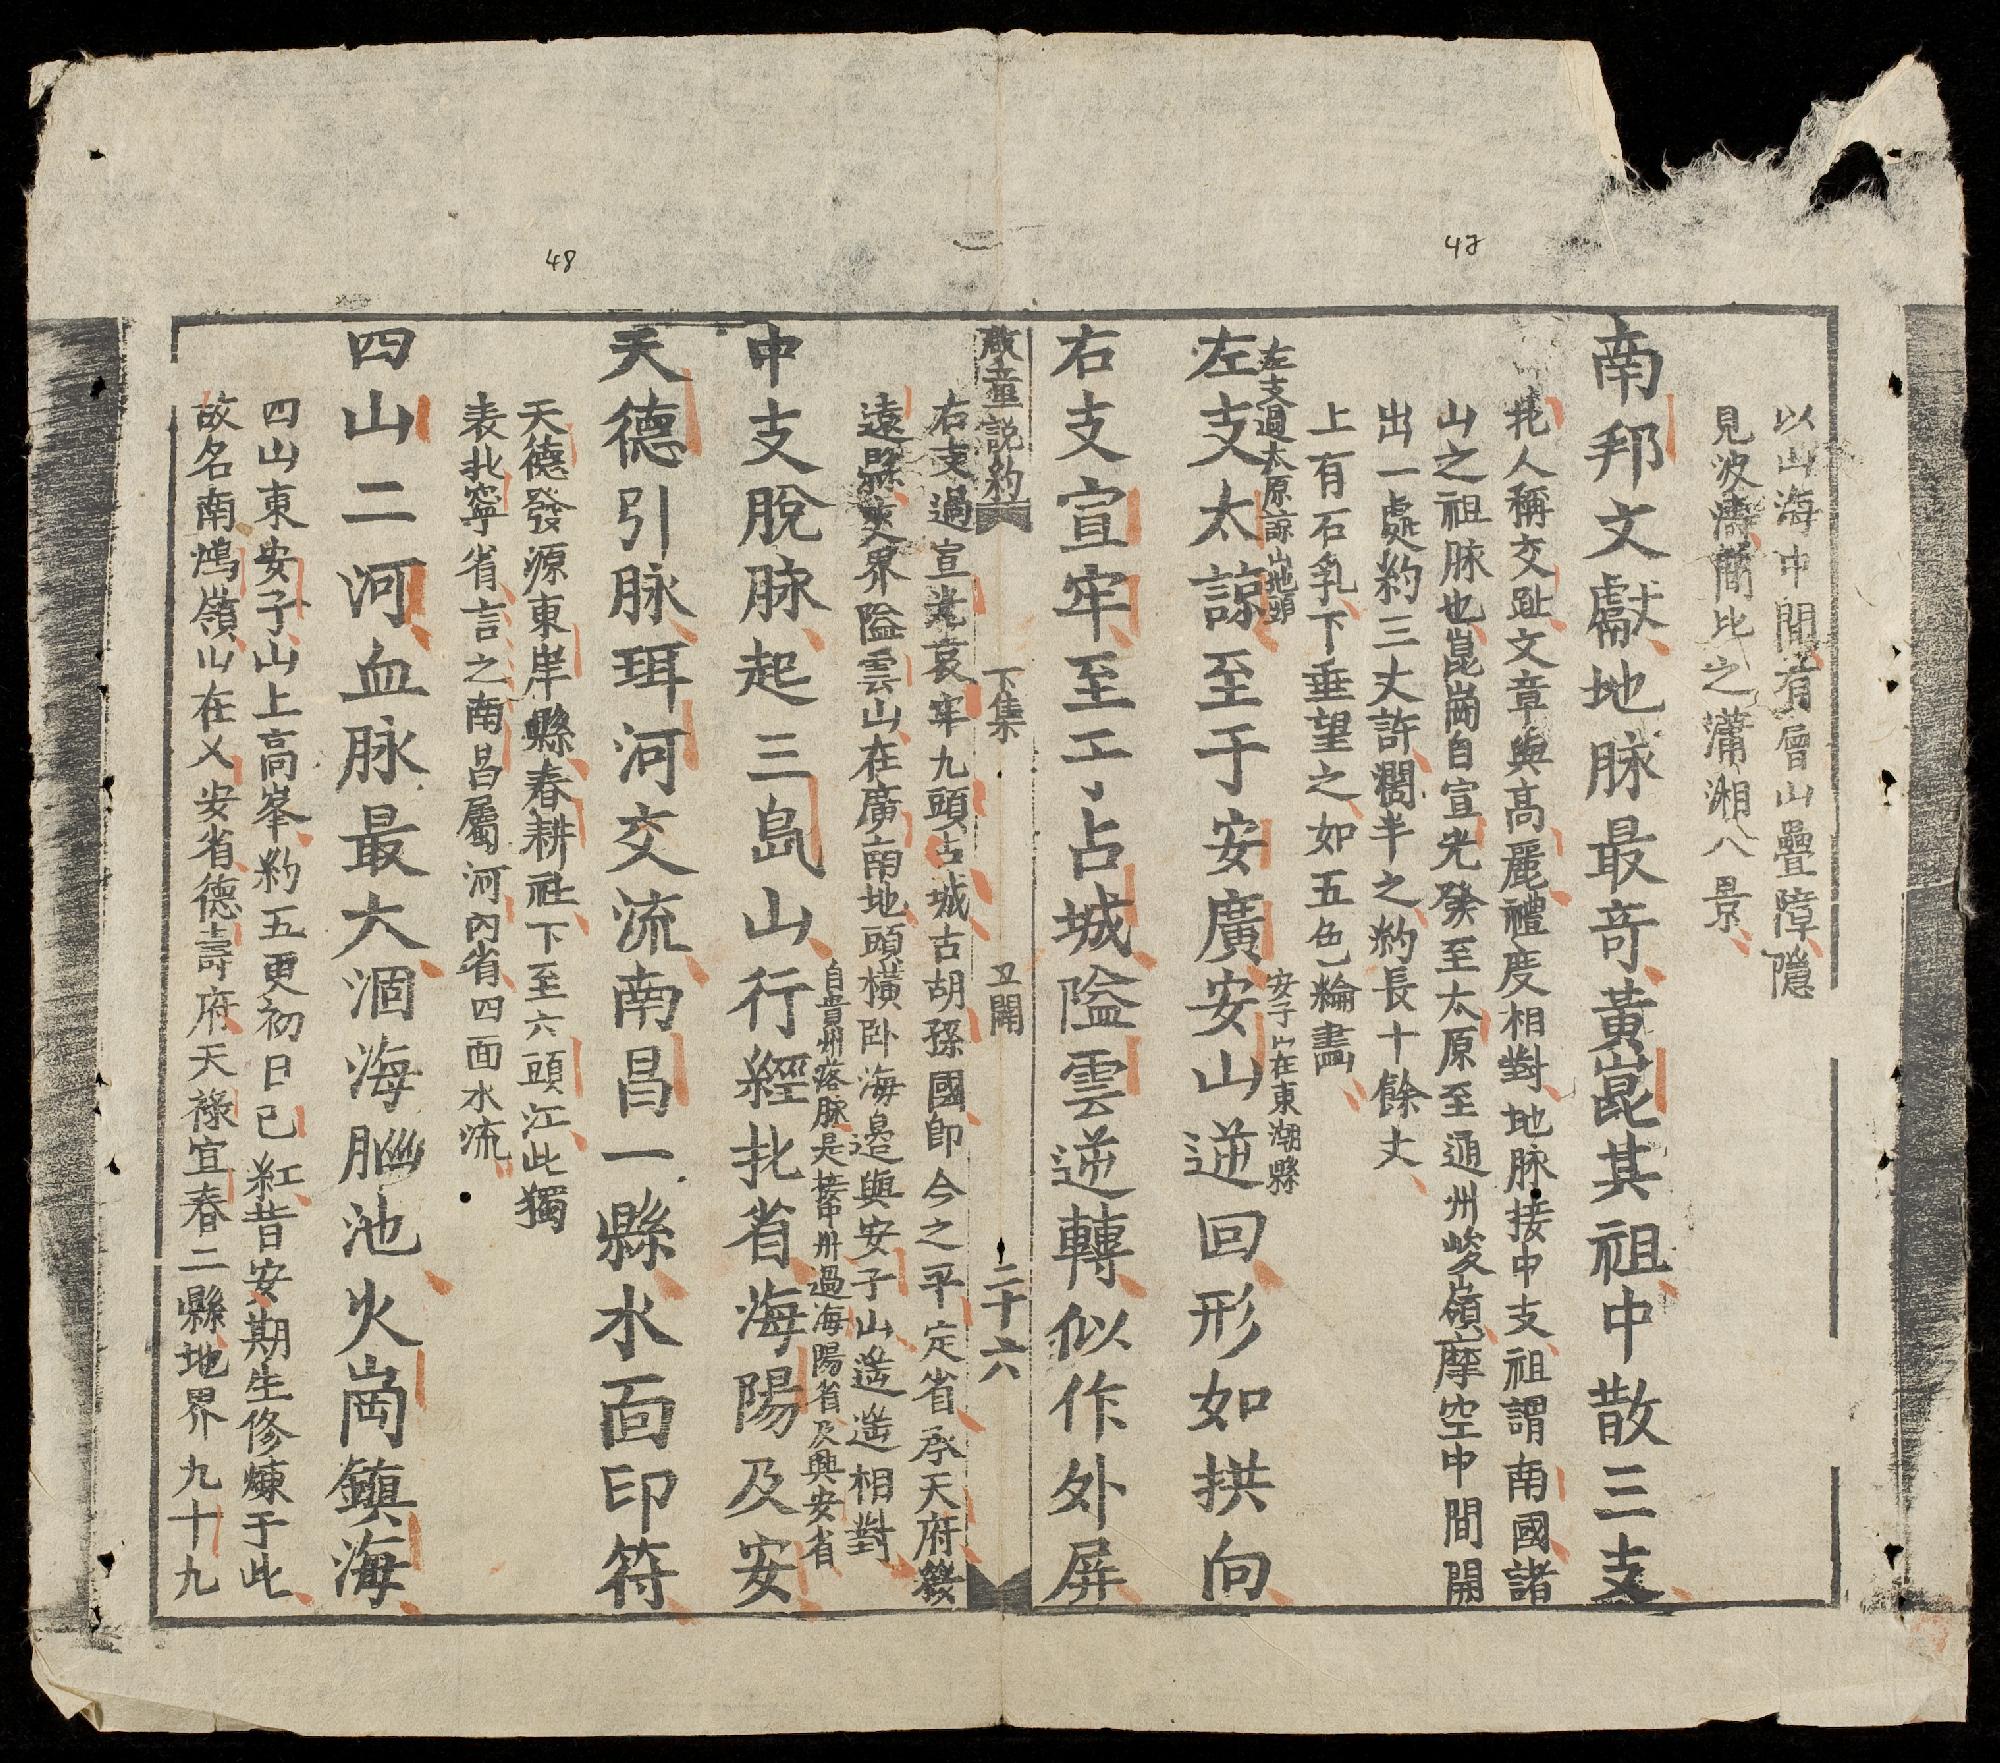 47
以山海中間有層山疊障隱
見波濤間比之瀟湘八景
南邦文獻地脉最奇黃崑其祖中散三支
北人稱交趾文章與高麗禮度相對地脉接中支祖謂南國諸
山之祖脉也崑崗自宣光發至太原至通州峻嶺摩空中間開
出一處約三丈許濶半之約長十餘丈
上有石乳下垂望之如五色綸畵
左支過太原諒山地頭
安子山在東潮縣
左支太諒至于安廣安山逆回形如拱向
右支宣牢至于占城隘雲逆轉似作外屏
啟童説約
下集
二十六
48
右支過宣光哀牢九頭占城古胡孫國即今之平定省承天府發
遠縣夾界隘雲山在廣南地頭横卧海邉與安子山遙遙相對
自貴州落脉長接中州過海陽省及興安省
中支脫脉起三島山行經北省海陽及安
天德引脉珥河交流南昌一縣水面印符
天德發源東岸縣春耕社下至六頭江此獨
表北寧省言之南昌屬河內省四面水流
四山二河血脉最大涸海腦池火崗鎮海
四山東安子山山上高峯約五更初日已紅昔安期生修煉于此
故名南鴻嶺山在乂安省德壽府天祿宜春二縣地界九十九